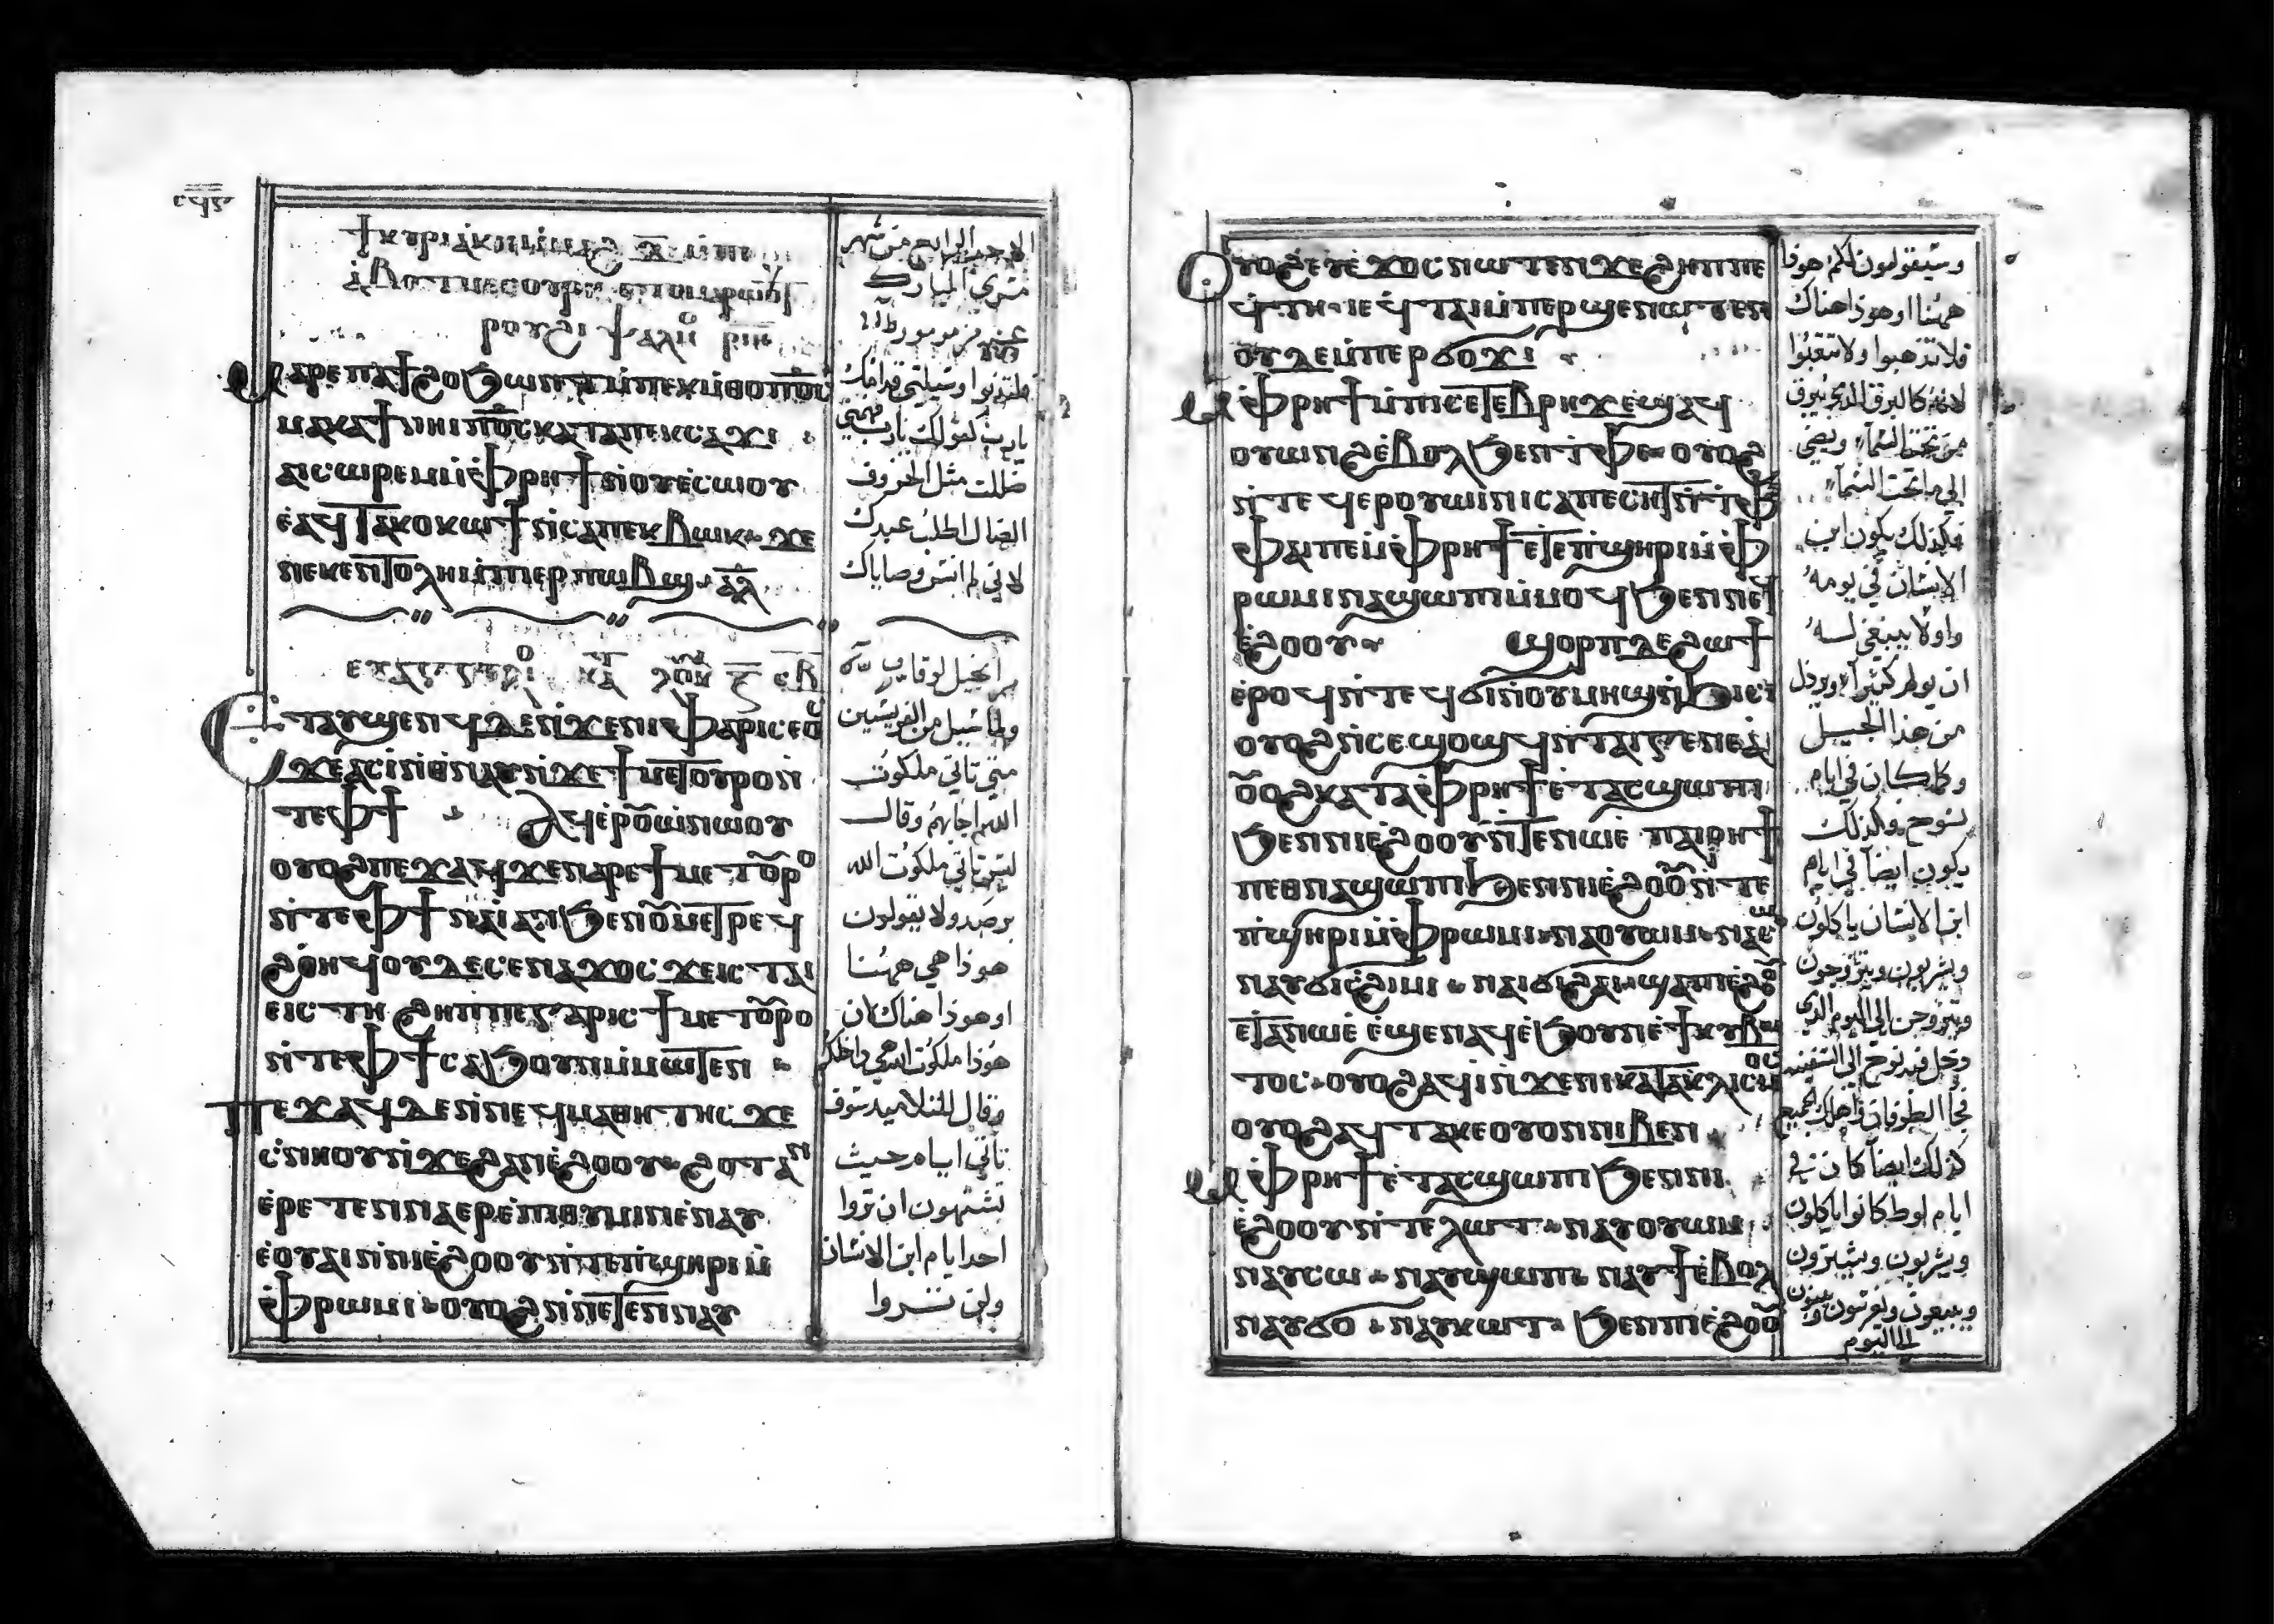 ϯⲕⲩⲣⲓⲁⲕⲏ ⲙ̀ⲙⲁϩ ⲇ̅
ⲁⲣⲉ ⲡⲁϯϩⲟ ϧⲱⲛⲧ ⲙ̀ⲡⲉⲕⲙ̀ⲑⲟ ⲡⲟ̅ⲥ̅
ⲙⲁⲕⲁϯ ⲛⲏⲓ ⲡⲟ̅ⲥ̅ ⲕⲁⲧⲁ ⲡⲉⲕⲥⲁϫⲓ
ⲁⲓⲥⲱⲣⲉⲙ ⲙ̀ⲫⲣⲏϯ ⲛ̀ⲟⲩⲉ̀ⲥⲱⲟⲩ
ⲉ̀ⲁϥⲧⲁⲕⲟ ⲕⲱϯ ⲛ̀ⲥⲁ ⲡⲉⲕⲃⲱⲕ ϫⲉ
ⲛⲉⲕⲉⲛⲧⲟⲗⲏ ⲙ̀ⲡⲉⲣⲡⲱⲃϣ ⲁ̅ⲗ̅
ⲉⲧⲁⲩϣⲉⲛϥ ⲇⲉ ⲛ̀ϫⲉ ⲛⲓⲫⲁⲣⲓⲥⲉⲟⲥ
ϫⲉ ⲁⲥⲓⲛ̀ⲑⲛⲁⲩ ⲛ̀ϫⲉ ϯⲙⲉⲧⲟⲩⲣⲟ ⲛ̀
ⲧⲉ ⲫϯ ⲁϥⲉⲣⲟⲩⲱ̀ ⲛⲱⲟⲩ
ⲟⲩⲟϩ ⲡⲉϫⲁϥ ϫⲉ ⲛⲁⲣⲉ ϯⲙⲉⲧⲟⲩⲣⲟ
ⲛ̀ⲧⲉ ⲫϯ ⲛⲁⲓ̀ ⲁⲛ ϧⲉⲛ ⲟⲩⲙⲉⲧⲣⲉϥ
ϩⲟⲏϥ ⲟⲩⲇⲉ ⲥⲉⲛⲁϫⲟⲥ ϫⲉ ⲓⲥ ⲧⲁⲓ
ⲉⲓⲥ ⲧⲏ ϩⲏⲡⲡⲉ ⲅⲁⲣ ⲓⲥ ϯⲙⲉⲧⲟⲩⲣⲟ
ⲛ̀ⲧⲉ ⲫϯ ⲥⲁϧⲟⲩⲛ ⲙ̀ⲙⲱⲧⲉⲛ
ⲡⲉϫⲁϥ ⲇⲉ ⲛ̀ⲛⲉϥⲙⲁⲑⲏⲧⲏⲥ ϫⲉ
ⲥ̀ⲛⲏⲟⲩ ⲛ̀ϫⲉ ϩⲁⲛⲉ̀ϩⲟⲟⲩ ϩⲟⲧⲁⲛ
ⲉ̀ⲣⲉⲧⲉⲛⲛⲁⲉⲣⲉ̀ⲡⲓⲑⲩⲙⲓⲛ ⲉ̀ⲛⲁⲩ
ⲉ̀ⲟⲩⲁⲓ ⲛ̀ⲛⲓⲉ̀ϩⲟⲟⲩ ⲛ̀ⲧⲉ ⲡ̀ϣⲏⲣⲓ ⲙ̀
ⲫⲣⲱⲙⲓ ⲟⲩⲟϩ ⲛ̀ⲛⲉⲧⲉⲛⲛⲁⲩ
الاحد الرابع من شهر
مسري المبارك
فلتدنوا وسيلتي قدامك
يارب كقولك يارب فهمني
ضللت مثل الخروف
الضال اطلب عبدك
لاني لم انس وصاياك
ولما سيل من الفريسين
متي تاتي ملكوت
الله اجابهم وقال
ليس تاتي ملكوت الله
برصد ولا يقولون
هوذا هي ههنا
او هوذا هناك ان
هوذا ملكوت الله هي داخلكم
وقال للتلاميد سوف
تاتي ايام حيث
تشتهون ان تروا
احد ايام ابن الانسان
ولن تروا
ⲟⲩⲟϩ ⲉⲩⲉ̀ϫⲟⲥ ⲛⲱⲧⲉⲛ ϫⲉ ϩⲏⲡⲡⲉ
ϥ̀ⲧⲏ ⲓⲉ ϥ̀ⲧⲁⲓ ⲙ̀ⲡⲉⲣϣⲉⲛⲱⲧⲉⲛ
ⲟⲩⲇⲉ ⲙ̀ⲡⲉⲣϭⲟϫⲓ
ⲙ̀ⲫⲣⲏϯ ⲙ̀ⲡⲓⲥⲉⲧⲉⲃⲣⲏϫ ⲉϣⲁϥ
ⲟⲩⲱⲛϩ ⲉ̀ⲃⲟⲗ ϧⲉⲛ ⲧ̀ⲫⲉ ⲟⲩⲟϩ
ⲛ̀ⲧⲉϥⲉⲣⲟⲩⲱⲓⲛⲓ ⲥⲁⲡⲉⲥⲏⲧ ⲛ̀ⲧ̀ⲫⲉ
ⲫⲁⲓ ⲡⲉ ⲙ̀ⲫⲣⲏϯ ⲉⲧⲉ ⲡ̀ϣⲏⲣⲓ ⲙ̀ⲫ
ⲣⲱⲙⲓ ⲛⲁϣⲱⲡⲓ ⲙ̀ⲙⲟϥ ϧⲉⲛ ⲡⲉϥ
ⲉ̀ϩⲟⲟⲩ ϣⲟⲣⲡ ⲇⲉ ϩⲱϯ
ⲉ̀ⲣⲟϥ ⲛ̀ⲧⲉϥϭⲓ ⲛ̀ⲟⲩⲙⲏϣ ⲛ̀ϧⲓⲥⲓ
ⲟⲩⲟϩ ⲛ̀ⲥⲉϣⲟϣϥ ⲛ̀ⲧⲁⲓⲅⲉⲛⲉⲁ̀
ⲟⲩⲟϩ ⲕⲁⲧⲁ ⲫⲣⲏϯ ⲉ̀ⲧⲁⲥϣⲱⲡⲓ
ϧⲉⲛ ⲛⲓⲉ̀ϩⲟⲟⲩ ⲛ̀ⲧⲉ ⲛⲱⲉ̀ ⲡⲁⲓⲣⲏϯ
ⲡⲉⲑⲛⲁϣⲱⲡⲓ ϧⲉⲛ ⲛⲓⲉ̀ϩⲟⲟⲩ ⲛ̀ⲧⲉ
ⲡ̀ϣⲏⲣⲓ ⲙ̀ⲫⲣⲱⲙⲓ ⲛⲁⲩⲟⲩⲱⲙ ⲛⲁⲩⲥⲱ
ⲛⲁⲩϭⲓϩⲓⲙⲓ ⲛⲁⲩϭⲓϩⲁⲓ ϣⲁ ⲡⲓⲉ̀ϩⲟⲟⲩ
ⲉⲧⲁ ⲛⲱⲉ̀ ϣⲉⲛⲁϥ ⲉ̀ϧⲟⲩⲛ ⲉ̀ϯⲕⲩⲃⲱ
ⲧⲟⲥ ⲟⲩⲟϩ ⲁϥⲓ̀ ⲛ̀ϫⲉ ⲡⲓⲕⲁⲧⲁⲕⲗⲩⲥⲙⲟⲥ
ⲟⲩⲟϩ ⲁϥⲧⲁⲕⲉ ⲟⲩⲟⲛ ⲛⲓⲃⲉⲛ
ⲙ̀ⲫⲣⲏϯ ⲉ̀ⲧⲁⲥϣⲱⲡⲓ ϧⲉⲛ ⲛⲓ
ⲉ̀ϩⲟⲟⲩ ⲛ̀ⲧⲉ ⲗⲱⲧ ⲛⲁⲩⲟⲩⲱⲙ
ⲛⲁⲩⲥⲱ ⲛⲁⲩϣⲱⲡ ⲛⲁⲩϯ ⲉ̀ⲃⲟⲗ
ⲛⲁⲩϭⲟ ⲛⲁⲩⲕⲱⲧ ϧⲉⲛ ⲡⲓⲉ̀ϩⲟⲟⲩ
وسيقولون لكم هوذا
ههنا او هوذا هناك
فلا تذهبوا ولا تتبعوا
لانه كالبرق الذي يبرق
من تحت السماء ويضي
الي ما تحت السماء
فكذلك يكون ابن
الانسان في يومه
واولا ينبغي له
ان يولم كثيرا ويرذل
من هذا الجيل
وكما كان في ايام
نوح وكذلك
يكون ايضا في ايام
ابن الانسان ياكلون
ويشربون ويتزوجون
ويتزوجن الي اليوم الذي
دخل فيه نوح الي السفينه
فجا الطوفان واهلك الجميع
كذلك ايضا كان في
ايام لوط كانوا ياكلون
ويشربون ويشترون
ويبيعون ويغرسون ويبنون
الي اليوم